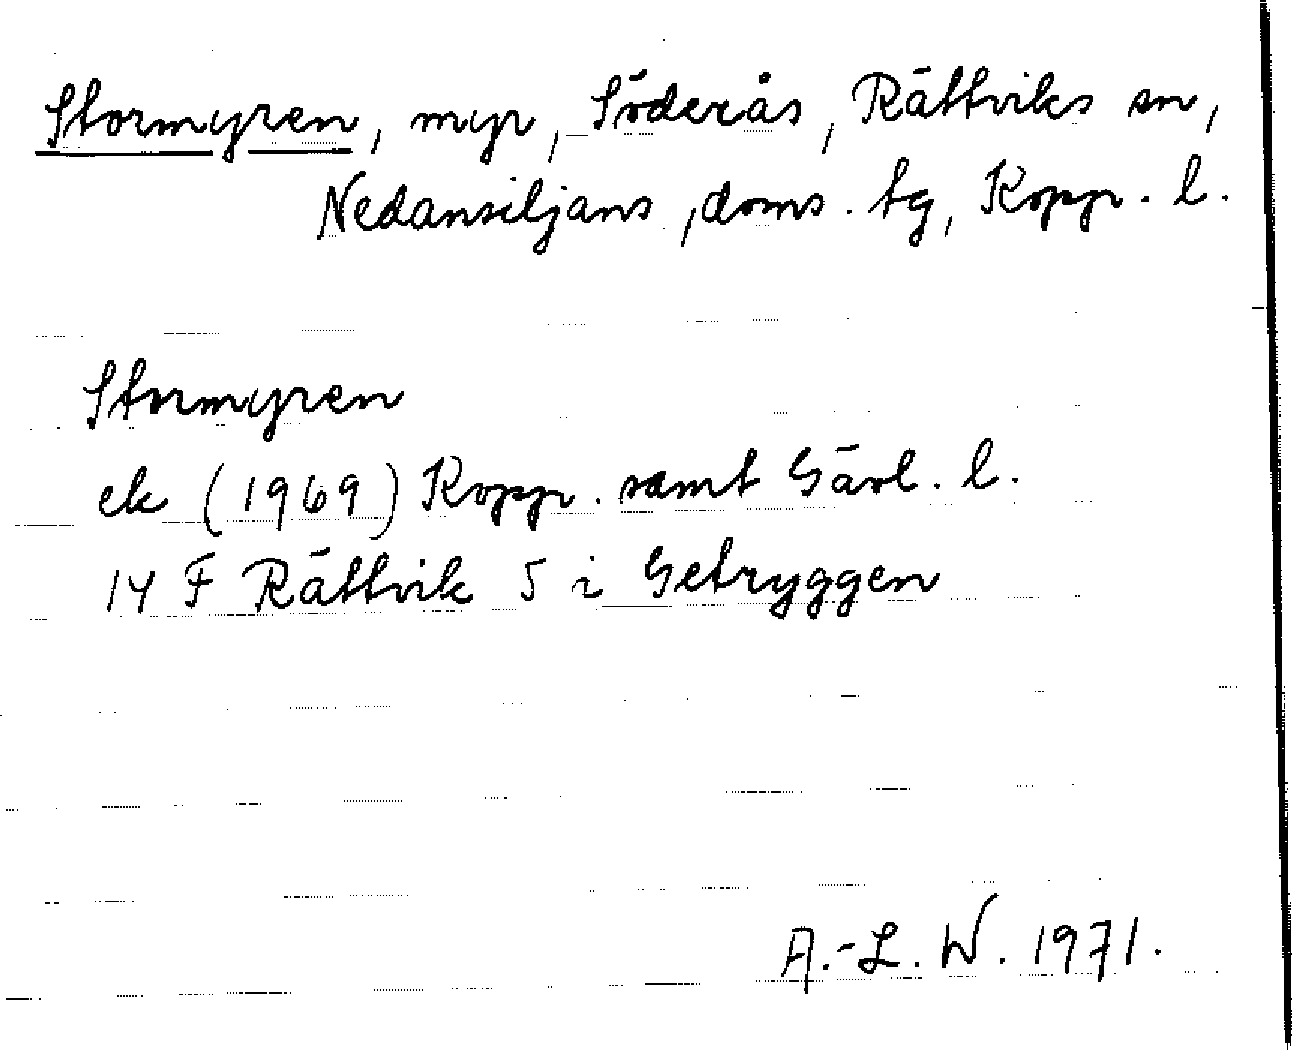 Stormyren, myr, Söderås, Rättviks sn,
Nedansiljans, doms. tg, Kopp. l.
Stormyren
ek (1969) Kopp. samt Gävl. l.
14 F Rättvik 5 i Getryggen
A.-L. W. 1971.